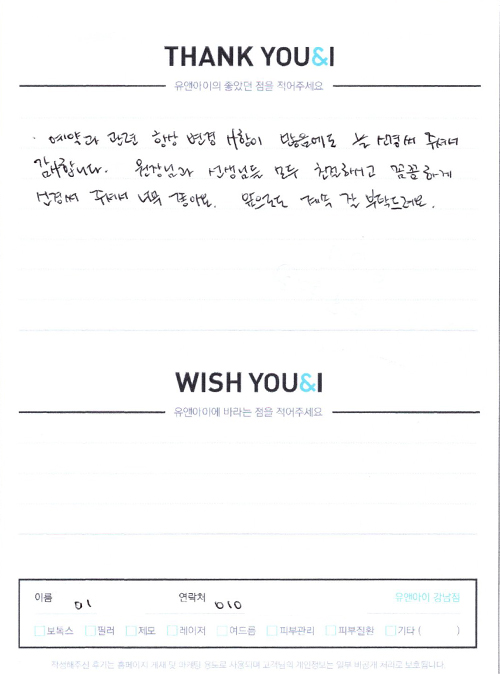 THANK YOU&I
유앤아이의 좋았던 점을 적어주세요
· 예약과 관련 항상 변경 사항이 많음에도 늘 신경써 주셔서
감사합니다. 원장님과 선생님들 모두 친절하시고 꼼꼼하게
신경써 주셔서 너무 좋아요. 앞으로도 계속 잘 부탁드려요.
WISH YOU&I
유앤아이에 바라는 점을 적어주세요
이름 이 연락처 010 유앤아이 강남점
보톡스 필러 제모 레이저 여드름 피부관리 피부질환 기타 ( )
작성해주신 후기는 홈페이지 게재 및 마케팅 용도로 사용되며 고객님의 개인정보는 일부 비공개 처리로 보호됩니다.